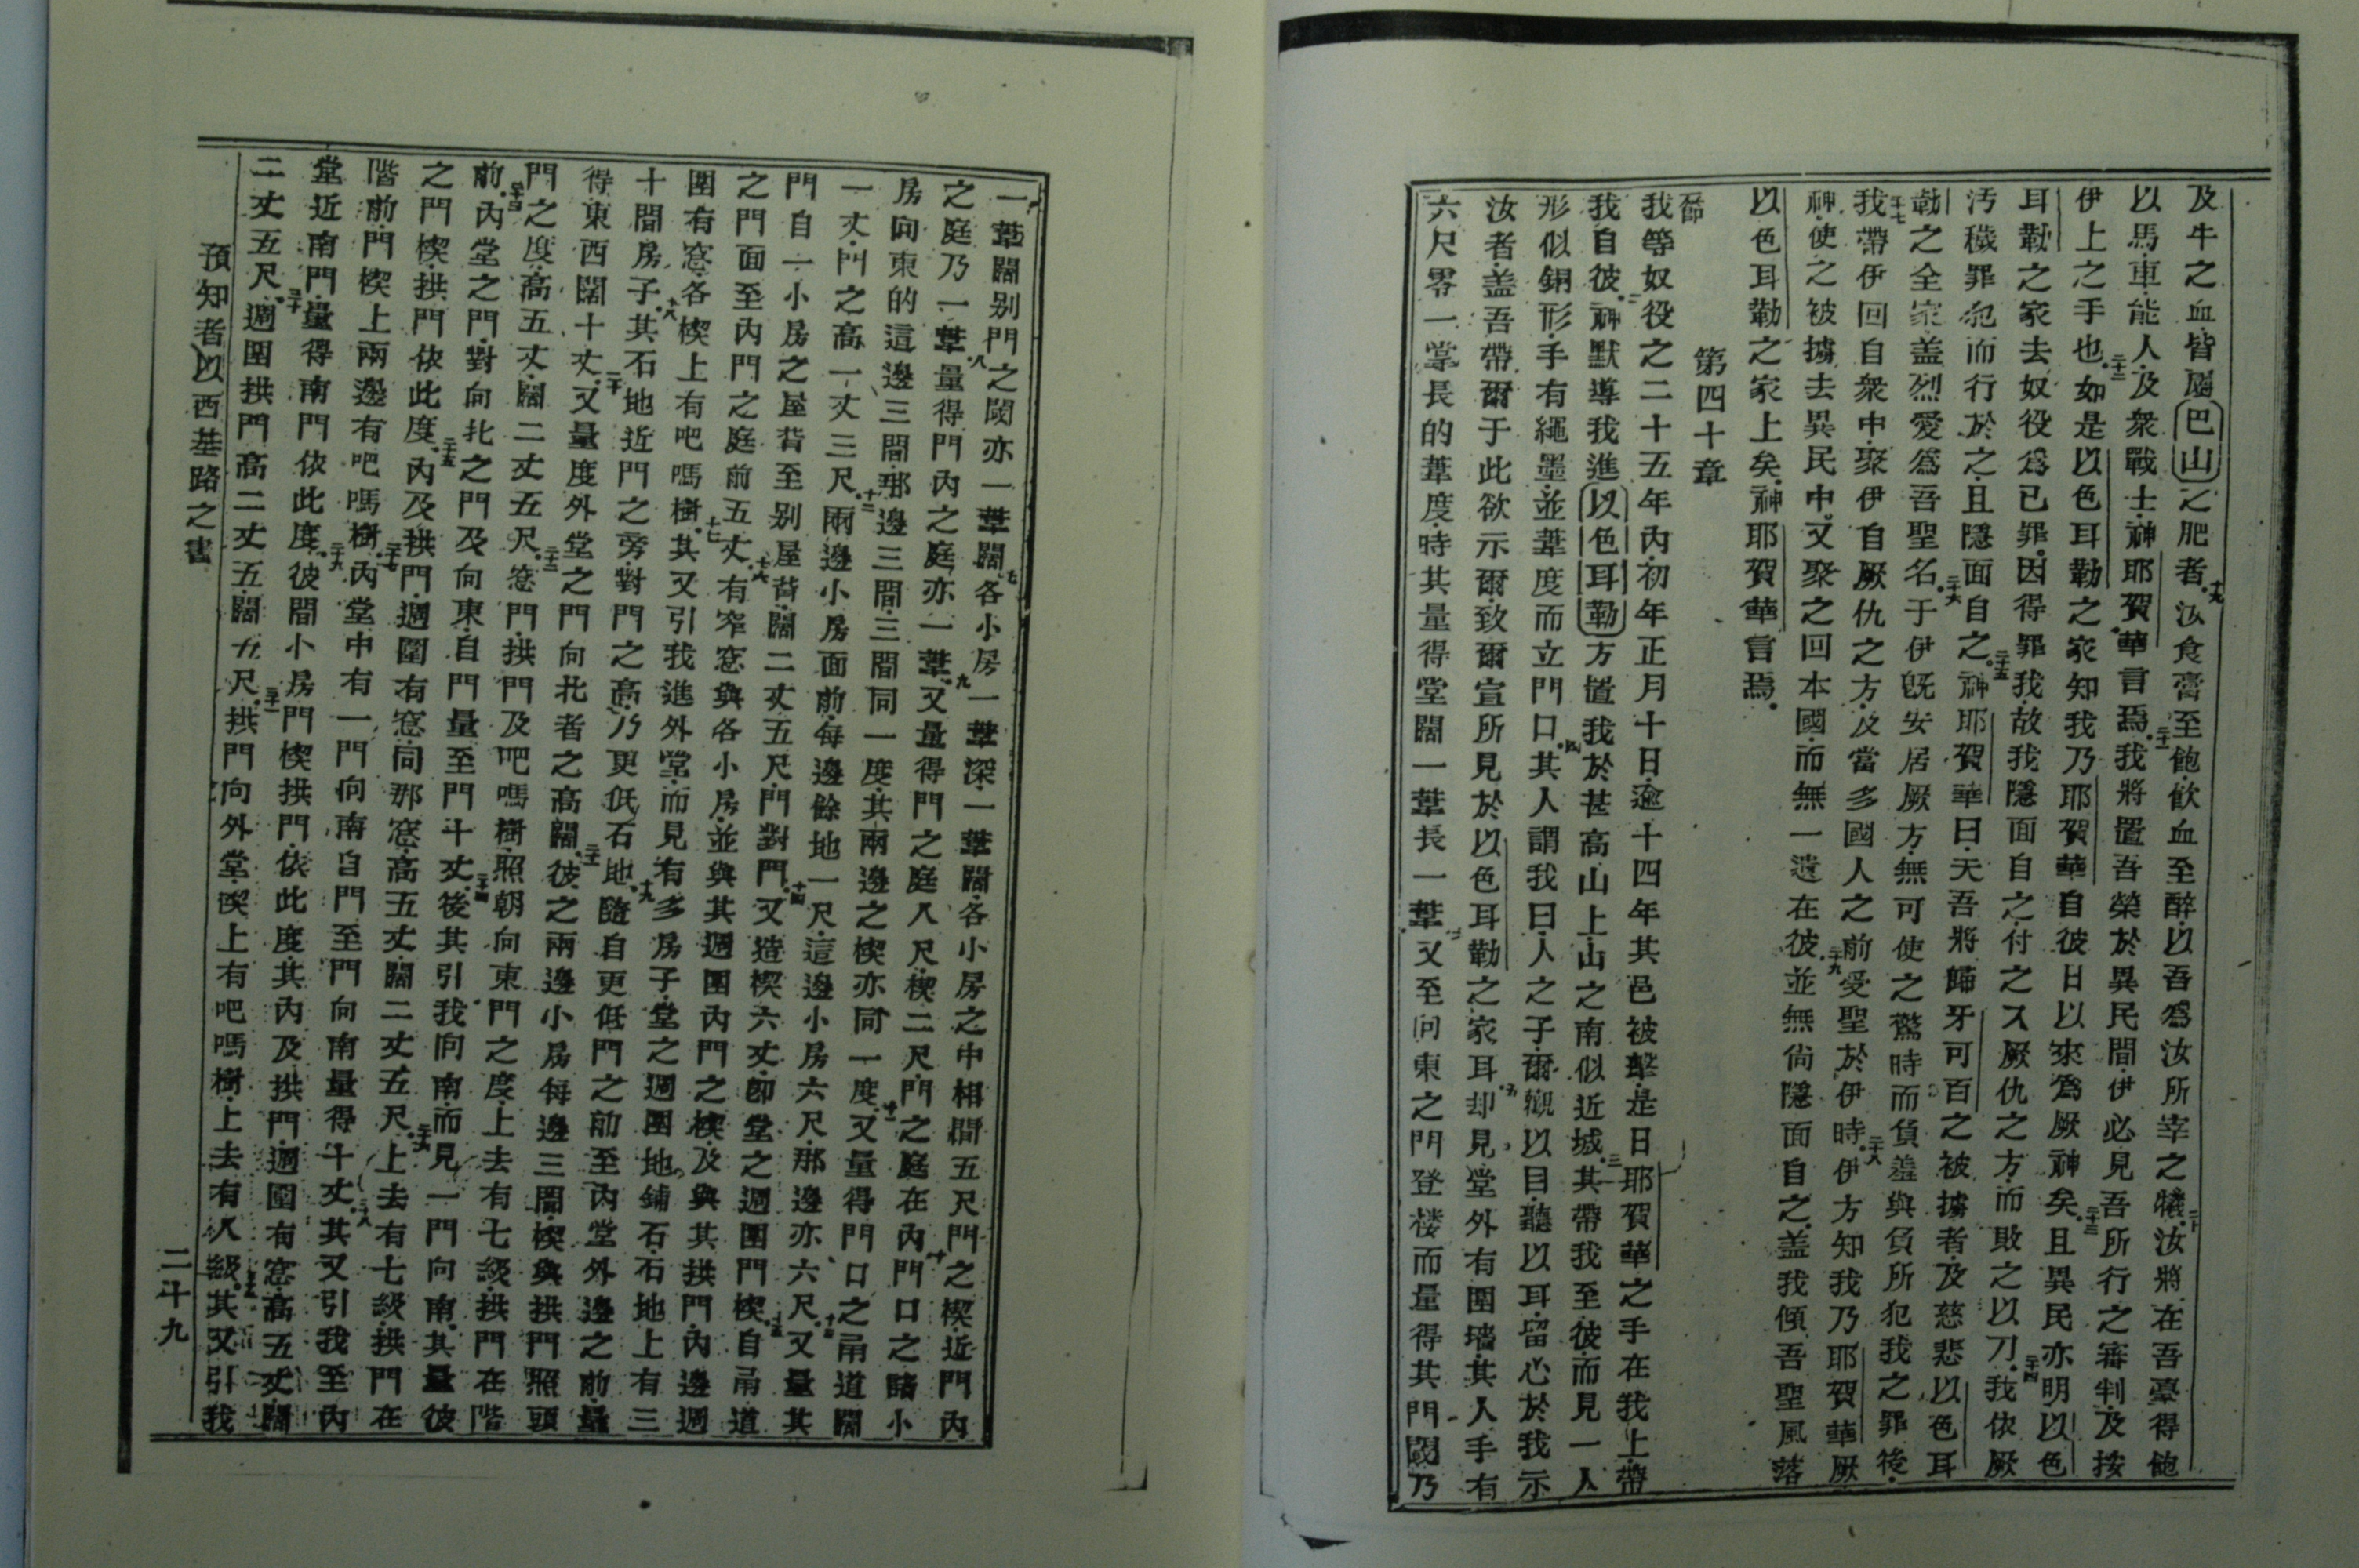 及牛之血皆屬巴山之肥者十九汝食膏至飽飲血至醉以吾為汝所宰之犧二十汝將在吾臺得飽
以馬車能人及衆戰士神耶賀華言焉二十一我將置吾榮於異民間伊必見吾所行之審判及按
伊上之手也二十二如是以色耳勒之家知我乃耶賀華自彼日以來為厥神矣二十三且異民亦明以色
耳勒之家去奴役為已罪因得罪我故我隱面自之付之入厥仇之方而敗之以刀二十四我依厥
汚穢罪犯而行於之且隱面自之二十五神耶賀華曰天吾將歸牙可百之被擄者及慈悲以色耳
勒之全家盖烈愛為吾聖名二十六于伊旣安居厥方無可使之驚時而負羞與負所犯我之罪後
二十七我帶伊回自衆中聚伊自厥仇之方及當多國人之前受聖於伊時二十八伊方知我乃耶賀華厥
神使之被擄去異民中又聚之回本國而無一遺在彼二十九並無尙隱面自之盖我傾吾聖風落
以色耳勒之家上矣神耶賀華言焉
第四十章
一節
我等奴役之二十五年內初年正月十日逾十四年其邑被擊是日耶賀華之手在我上帶
我自彼二神默導我進以色耳勒方置我於甚高山上山之南似近城三其帶我至彼而見一人
形似銅形手有繩墨並葦度而立門口四其人謂我曰人之子爾觀以目聽以耳留心於我示
汝者盖吾帶爾于此欲示爾致爾宣所見於以色耳勒之家耳五却見堂外有圍墻其人手有
六尺零一掌長的葦度時其量得堂闊一葦長一葦六又至向東之門登楼而量得其門閾乃
一葦闊别門之閾亦一葦闊七各小房一葦深一葦闊各小房之中相間五尺門之楔近門內
之庭乃一葦八量得門內之庭亦一葦九又量得門之庭八尺楔二尺門之庭在內門口之十諸小
房向東的這邊三間那邊三間三間同一度其兩邊之楔亦同一度十一又量得門口之甬道闊
一丈門之高一丈三尺十二兩邊小房面前每邊餘地一尺這邊小房六尺那邊亦六尺十三又量其
門自一小房之屋背至别屋背闊二丈五尺門對門十四又造楔六丈卽堂之週圍門楔十五自甬道
之門面至內門之庭前五丈十六有窄窓與各小房並與其週圍內門之楔及與其拱門內邊週
圍有窓各楔上有吧嗎樹十七其又引我進外堂而見有多房子堂之週圍地鋪石石地上有三
十間房子十八其石地近門之旁對門之高乃更低石地十九隨自更低門之前至內堂外邊之前量
得東西闊十丈二十又量度外堂之門向北者之高闊二十一彼之兩邊小房每邊三間楔與拱門照頭
門之度高五丈闊二丈五尺二十二窓門拱門及吧嗎樹照朝向東門之度上去有七級拱門在階
前二十三內堂之門對向北之門及向東自門量至門十丈二十四後其引我向南而見一門向南其量彼
之門楔拱門依此度二十五內及拱門週圍有窓同那窓高五丈闊二丈五尺二十六上去有七級拱門在
階前門楔上兩邊有吧嗎樹二十七內堂中有一門向南自門至門向南量得十丈二十八其又引我至內
堂近南門量得南門依此度二十九彼間小房門楔拱門依此度其內及拱門週圍有窓高五丈闊
二丈五尺三十週圍拱門高二丈五闊五尺三十一拱門向外堂楔上有吧嗎樹上去有八級三十二其又引我
預知者以西基路之書
二千九